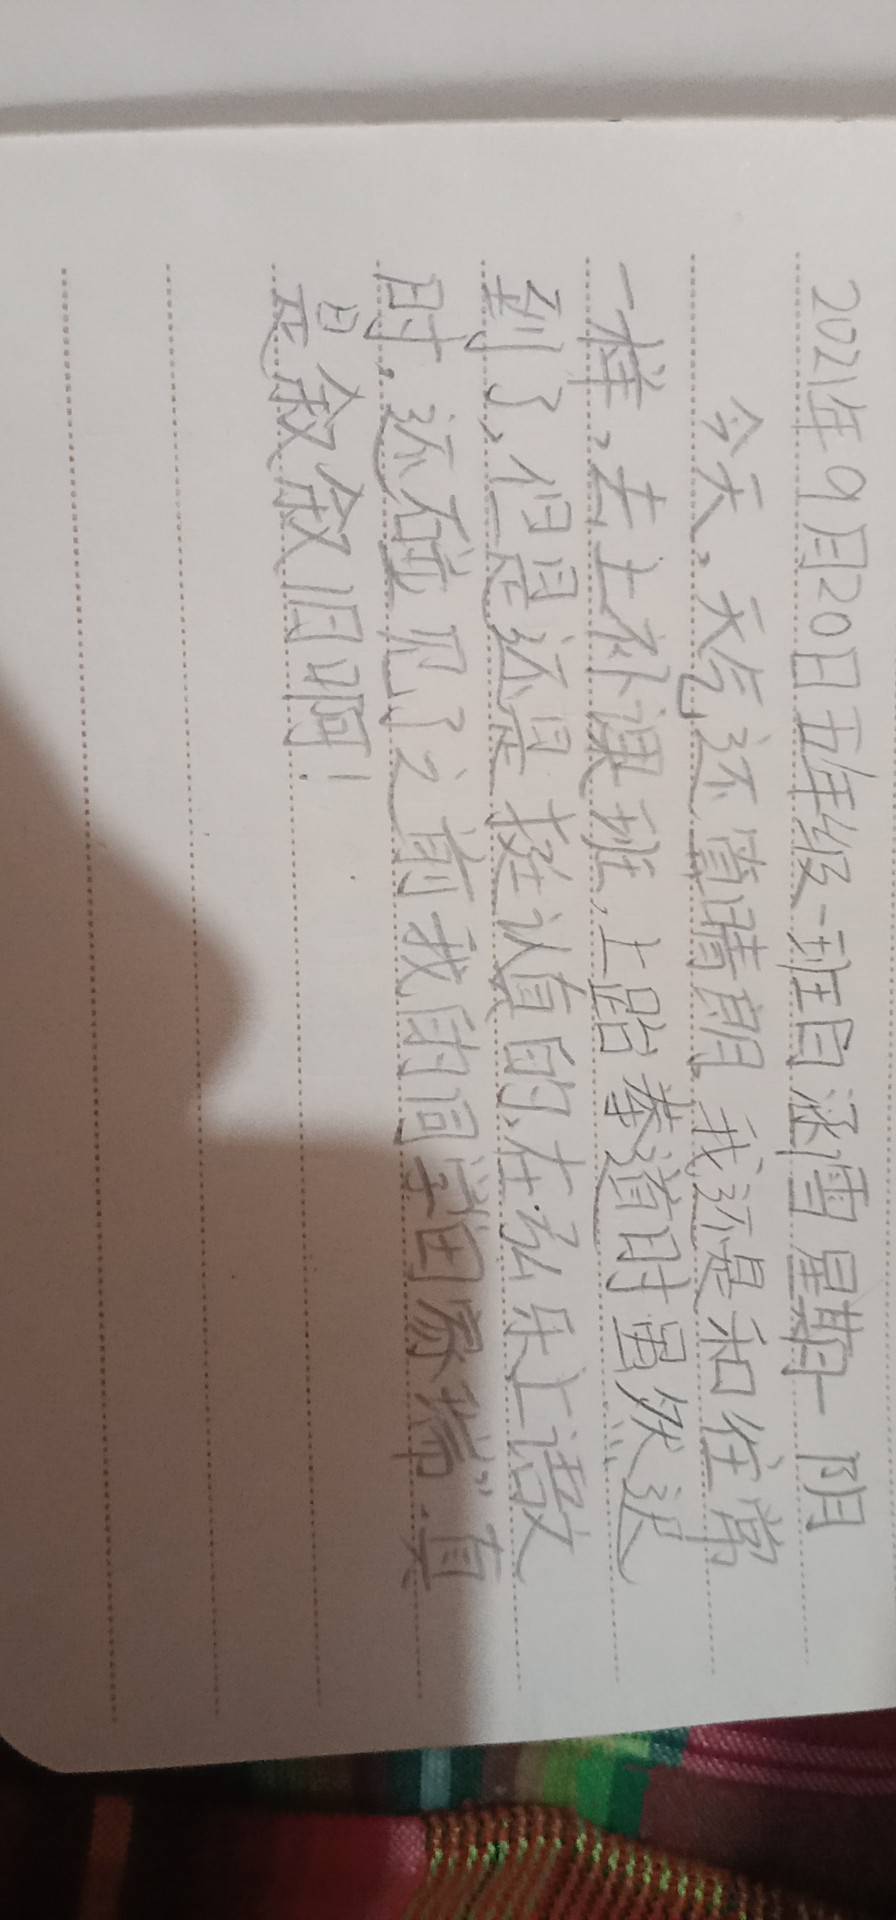 2021年9月20日五年级一班吕涵雪 星期一 阴
今天,天气还算晴朗 我还是和往常
一样,去上补课班,上跆拳道时虽然迟
到了,但是还是挺认真的,在弘乐上语数
时,还碰见了之前我的同学田家瑞,真
是叙叙旧啊!